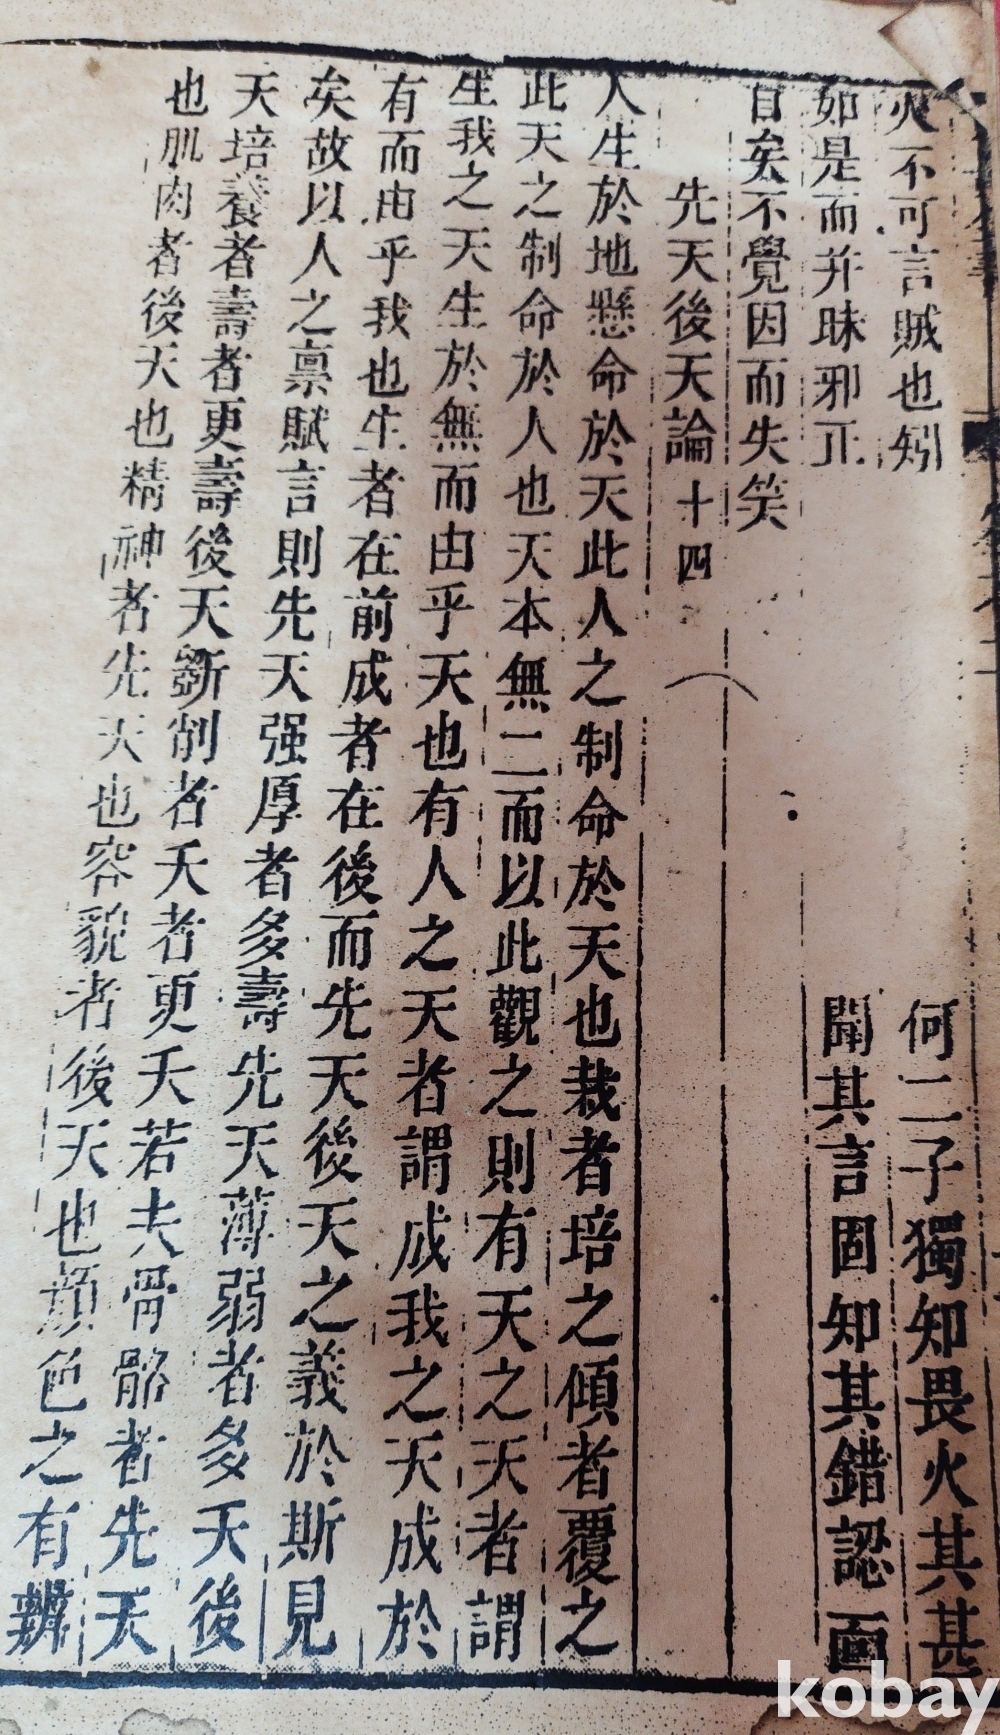 火不可言賊也矧何二子獨知畏火其甚
如是而并昧邪正聞其言固知其錯認面
目矣不覺因而失笑
先天後天論 十四
人生於地懸命於天此人之制命於天也栽者培之傾者覆之
此天之制命於人也天本無二而以此觀之則有天之天者謂
生我之天生於無而由乎天也有人之天者謂成我之天成於
有而由乎我也生者在前成者在後而先天後天之義於斯見
矣故以人之稟賦言則先天强厚者多壽先天薄弱者多夭後
天培養者壽者更壽後天斲削者夭者更夭若夫骨骼者先天
也肌肉者後天也精神者先天也容貌者後天也顔色之有辨
kobay